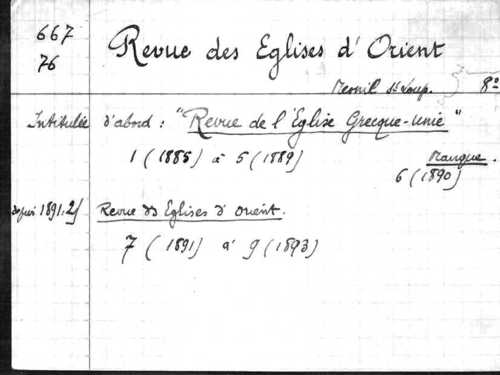 667
76
Revue des Eglises d'Orient
Mesnil St Loup. 8°
Intitulée d'abord : "Revue de l'Eglise Grecque-unie"
1 (1885) à 5 (1889)
Manque.
6 (1890)
depuis 1891, Revue des Eglises d'Orient.
7 (1891) à 9 (1893)